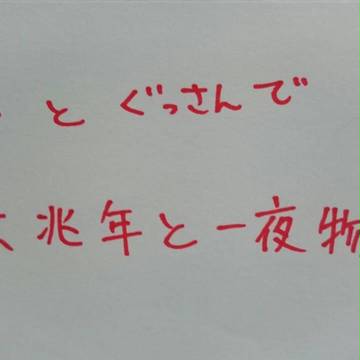 と ぐっさんで
兆年と一夜物